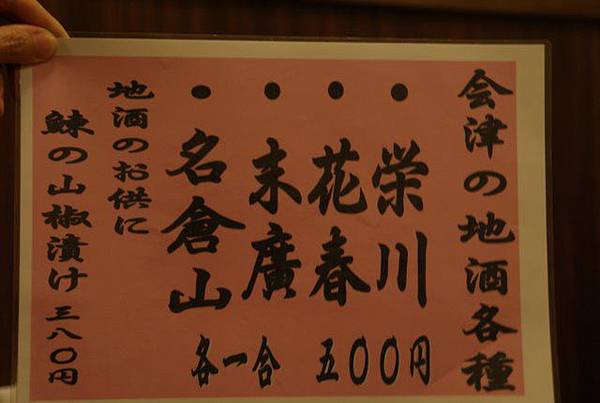 会津の地酒各種
・栄川
・花春
・末廣
・名倉山
各一合 五〇〇円
地酒のお供に
鰊の山椒漬け 三八〇円